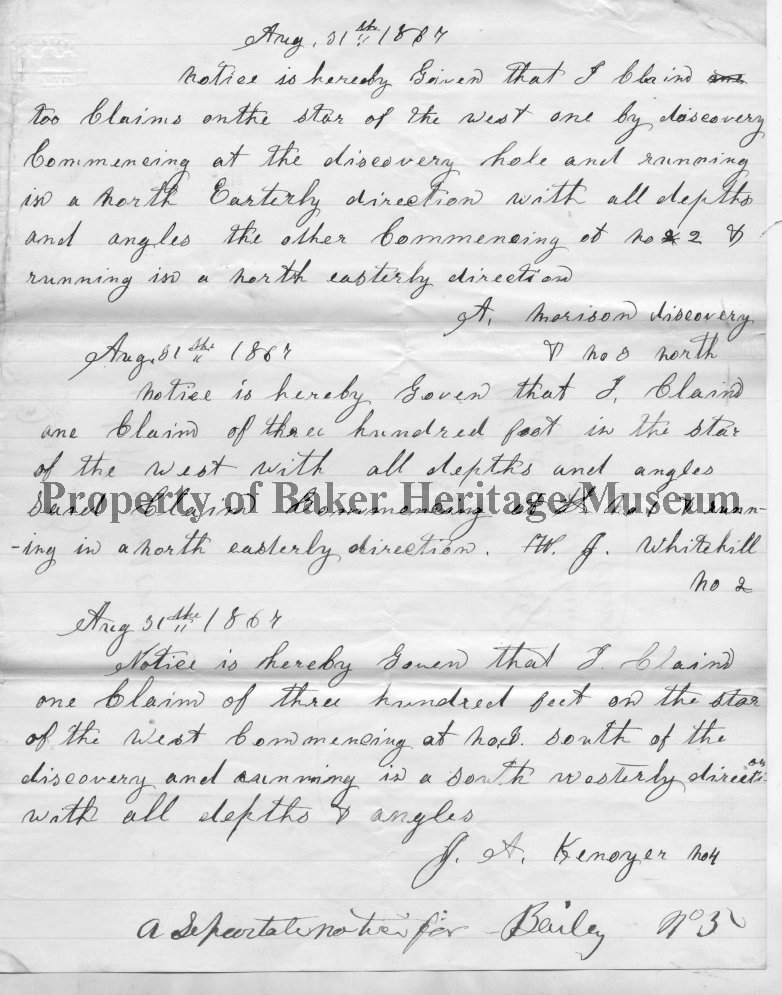 Aug. 31 the 1867
Notice is hereby Given that I Claim one
too Claims on the star of the west one by discovery
Commencing at the discovery hole and running
in a north Easterly direction with all depths
and angles the other Commencing at no 2 &
running in a north easterly direction
A. Morison discovery
& no 3 north
Aug. 31 the 1867
Notice is hereby Goven that I, Claim
one Claim of three hundred foot in the star
of the west with all depths and angles
Property of Baker Heritage Museum
Said Claim Commencing at & runn-
-ing in a north easterly direction. W. J. Whitehill
no 2
Aug 31 the 1867
Notice is hereby Goven that I. Claim
one Claim of three hundred feet on the star
of the west Commencing at no south of the
discovery and running in a south westerly direction
with all depths & angles
J. A. Kenoyer no 4
a Sepeartate notice for Bailey No 3